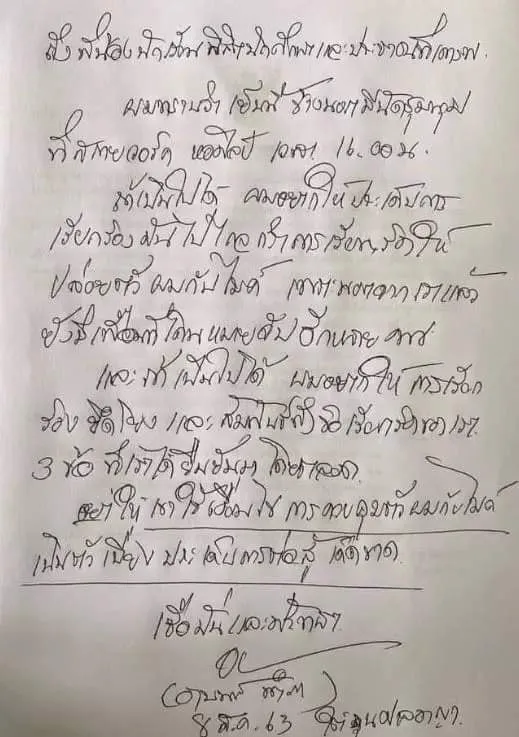 ถึง พี่น้อง นักเรียน นิสิต นักศึกษา และ ประชาชนที่เคารพ
ผมทราบว่า เย็นนี้ ข้างนอก มีนัดชุมนุม
ที่ สกายวอร์ค หอศิลป์ เวลา 16.00 น.
ถ้าเป็นไปได้ ผมอยากให้ ประเด็นการ
เรียกร้อง มันไปไกล กว่า การเรียกร้องให้
ปล่อยตัว ผมกับไมค์ เพราะนอกจาก เราแล้ว
ยังมีเพื่อนที่โดนหมายจับ อีกหลาย คน
และ ถ้า เป็นไปได้ ผมอยากให้ การเรียก
ร้อง ยึดโยง และ สัมพันธ์กับ ข้อเรียกร้องของเรา
3 ข้อ ที่เราได้ยืนยันมา โดยตลอด
อย่าให้ เขาใช้เงื่อนไข การควบคุมตัว ผมกับไมค์
เป็นตัว เบี่ยง ประเด็นการต่อสู้ เด็ดขาด
เชื่อมั่นและศรัทธา
(อานนท์ นำภา)
8 ส.ค. 63 ใต้ถุนศาลอาญา